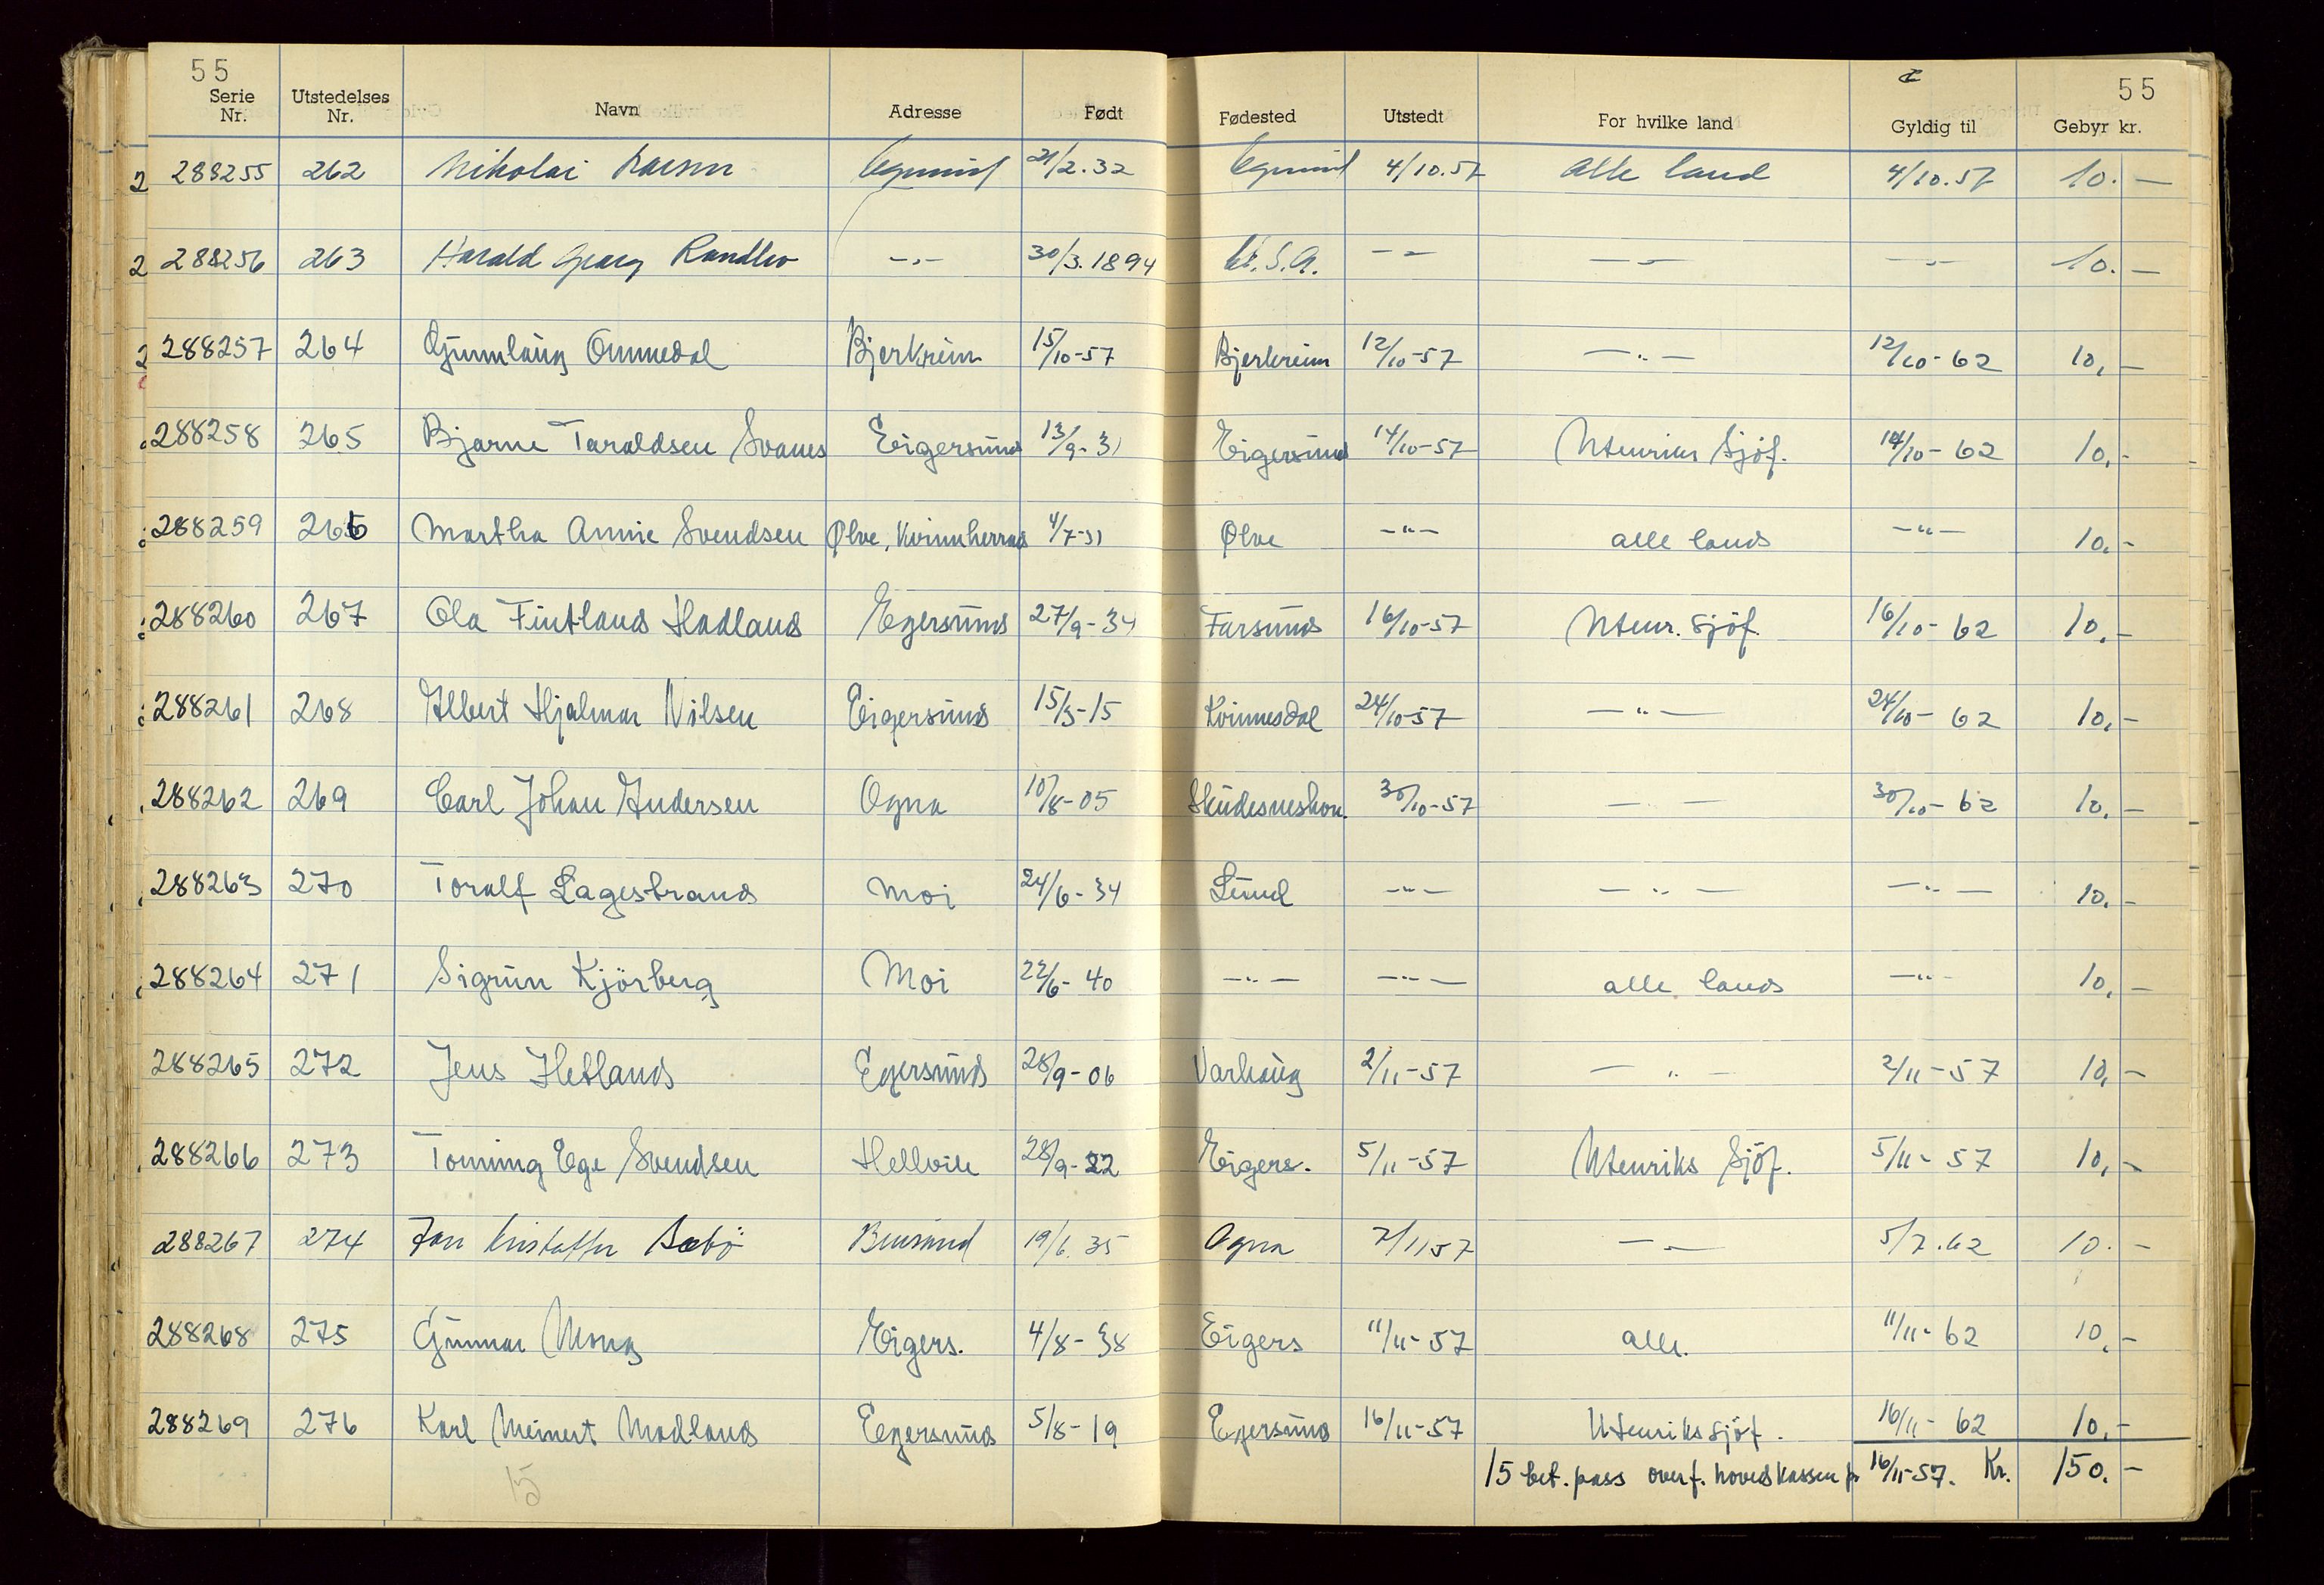 55 55
Serie Nr. Utstedelses Nr. Navn Adresse Født Fødested Utstedt For hvilke land Gyldig til Gebyr kr.
288255 262 Nikolai Egersund 21/2.32 Egersund 4/10.57 alle land 4/10.57 10.-
288256 263 Harald Georg Randlev -"- 30/3.1894 U.S.A. -"- -"- -"- 10.-
288257 264 Gunnlaug Ommedal Bjerkreim 15/10-57 Bjerkreim 12/10-57 -"- 12/10-62 10,-
288258 265 Bjarne Taraldsen Svanes Eigersund 13/9-31 Eigersund 14/10-57 Utenriks Sjöf. 14/10-62 10,-
288259 266 Martha Annie Svendsen Ølve, Kvinnherrad 4/7-31 Ølve -"- alle land -"- 10,-
288260 267 Ola Fintland Hadland Egersund 27/9-34 Farsund 16/10-57 Utenr. Sjöf. 16/10-62 10,-
288261 268 Albert Hjalmar Nilsen Eigersund 15/3-15 Kvinnesdal 24/10-57 -"- 24/10-62 10,-
288262 269 Carl Johan Andersen Ogna 10/8-05 Skudesneshavn. 30/10-57 - - 30/10-62 10,-
288263 270 Toralf Lagestrand Moi 24/6-34 Lund -"- -"- -"- 10,-
288264 271 Sigrun Kjörberg Moi 22/6-40 -"- -"- alle land -"- 10,-
288265 272 Jens Hetland Egersund 28/9-06 Varhaug 2/11-57 -"- 2/11-57 10,-
288266 273 Tonning Ege Svendsen Hellvik 28/9-22 Eigers. 5/11-57 Utenriks Sjöf. 5/11-57 10,-
288267 274 Jan Kristoffer Bøbö Brusand 19/6.35 Ogna 7/11 57 -"- 5/7.62 10.-
288268 275 Gunnar Mong Eigers. 4/8-38 Eigers 11/11-57 alle. 11/11-62 10,-
288269 276 Karl Meinert Madland Egersund 5/8-19 Egersund 16/11-57 Utenriks sjöf. 16/11-62 10,-
15 15 bet. pass overf. hovedkassen pr 16/11-57. Kr. 150.-